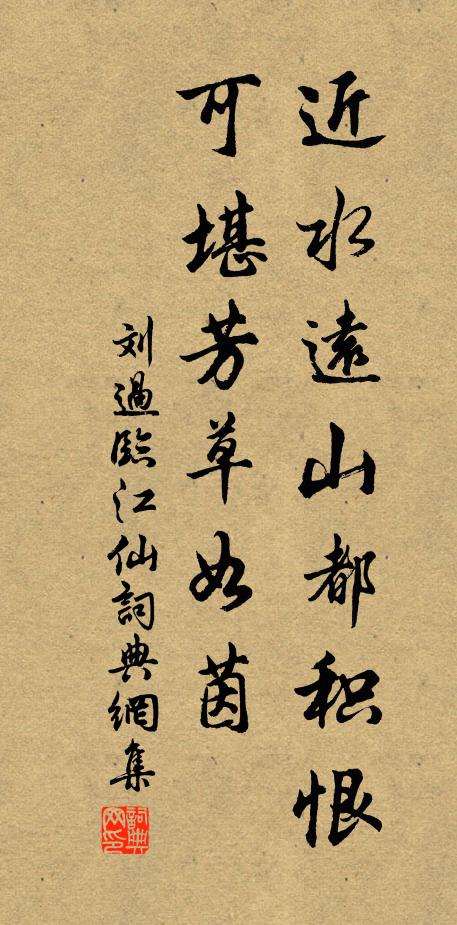 近水遠山都积恨
可堪芳草如茵
刘過臨江仙詞典網集
詞典网印